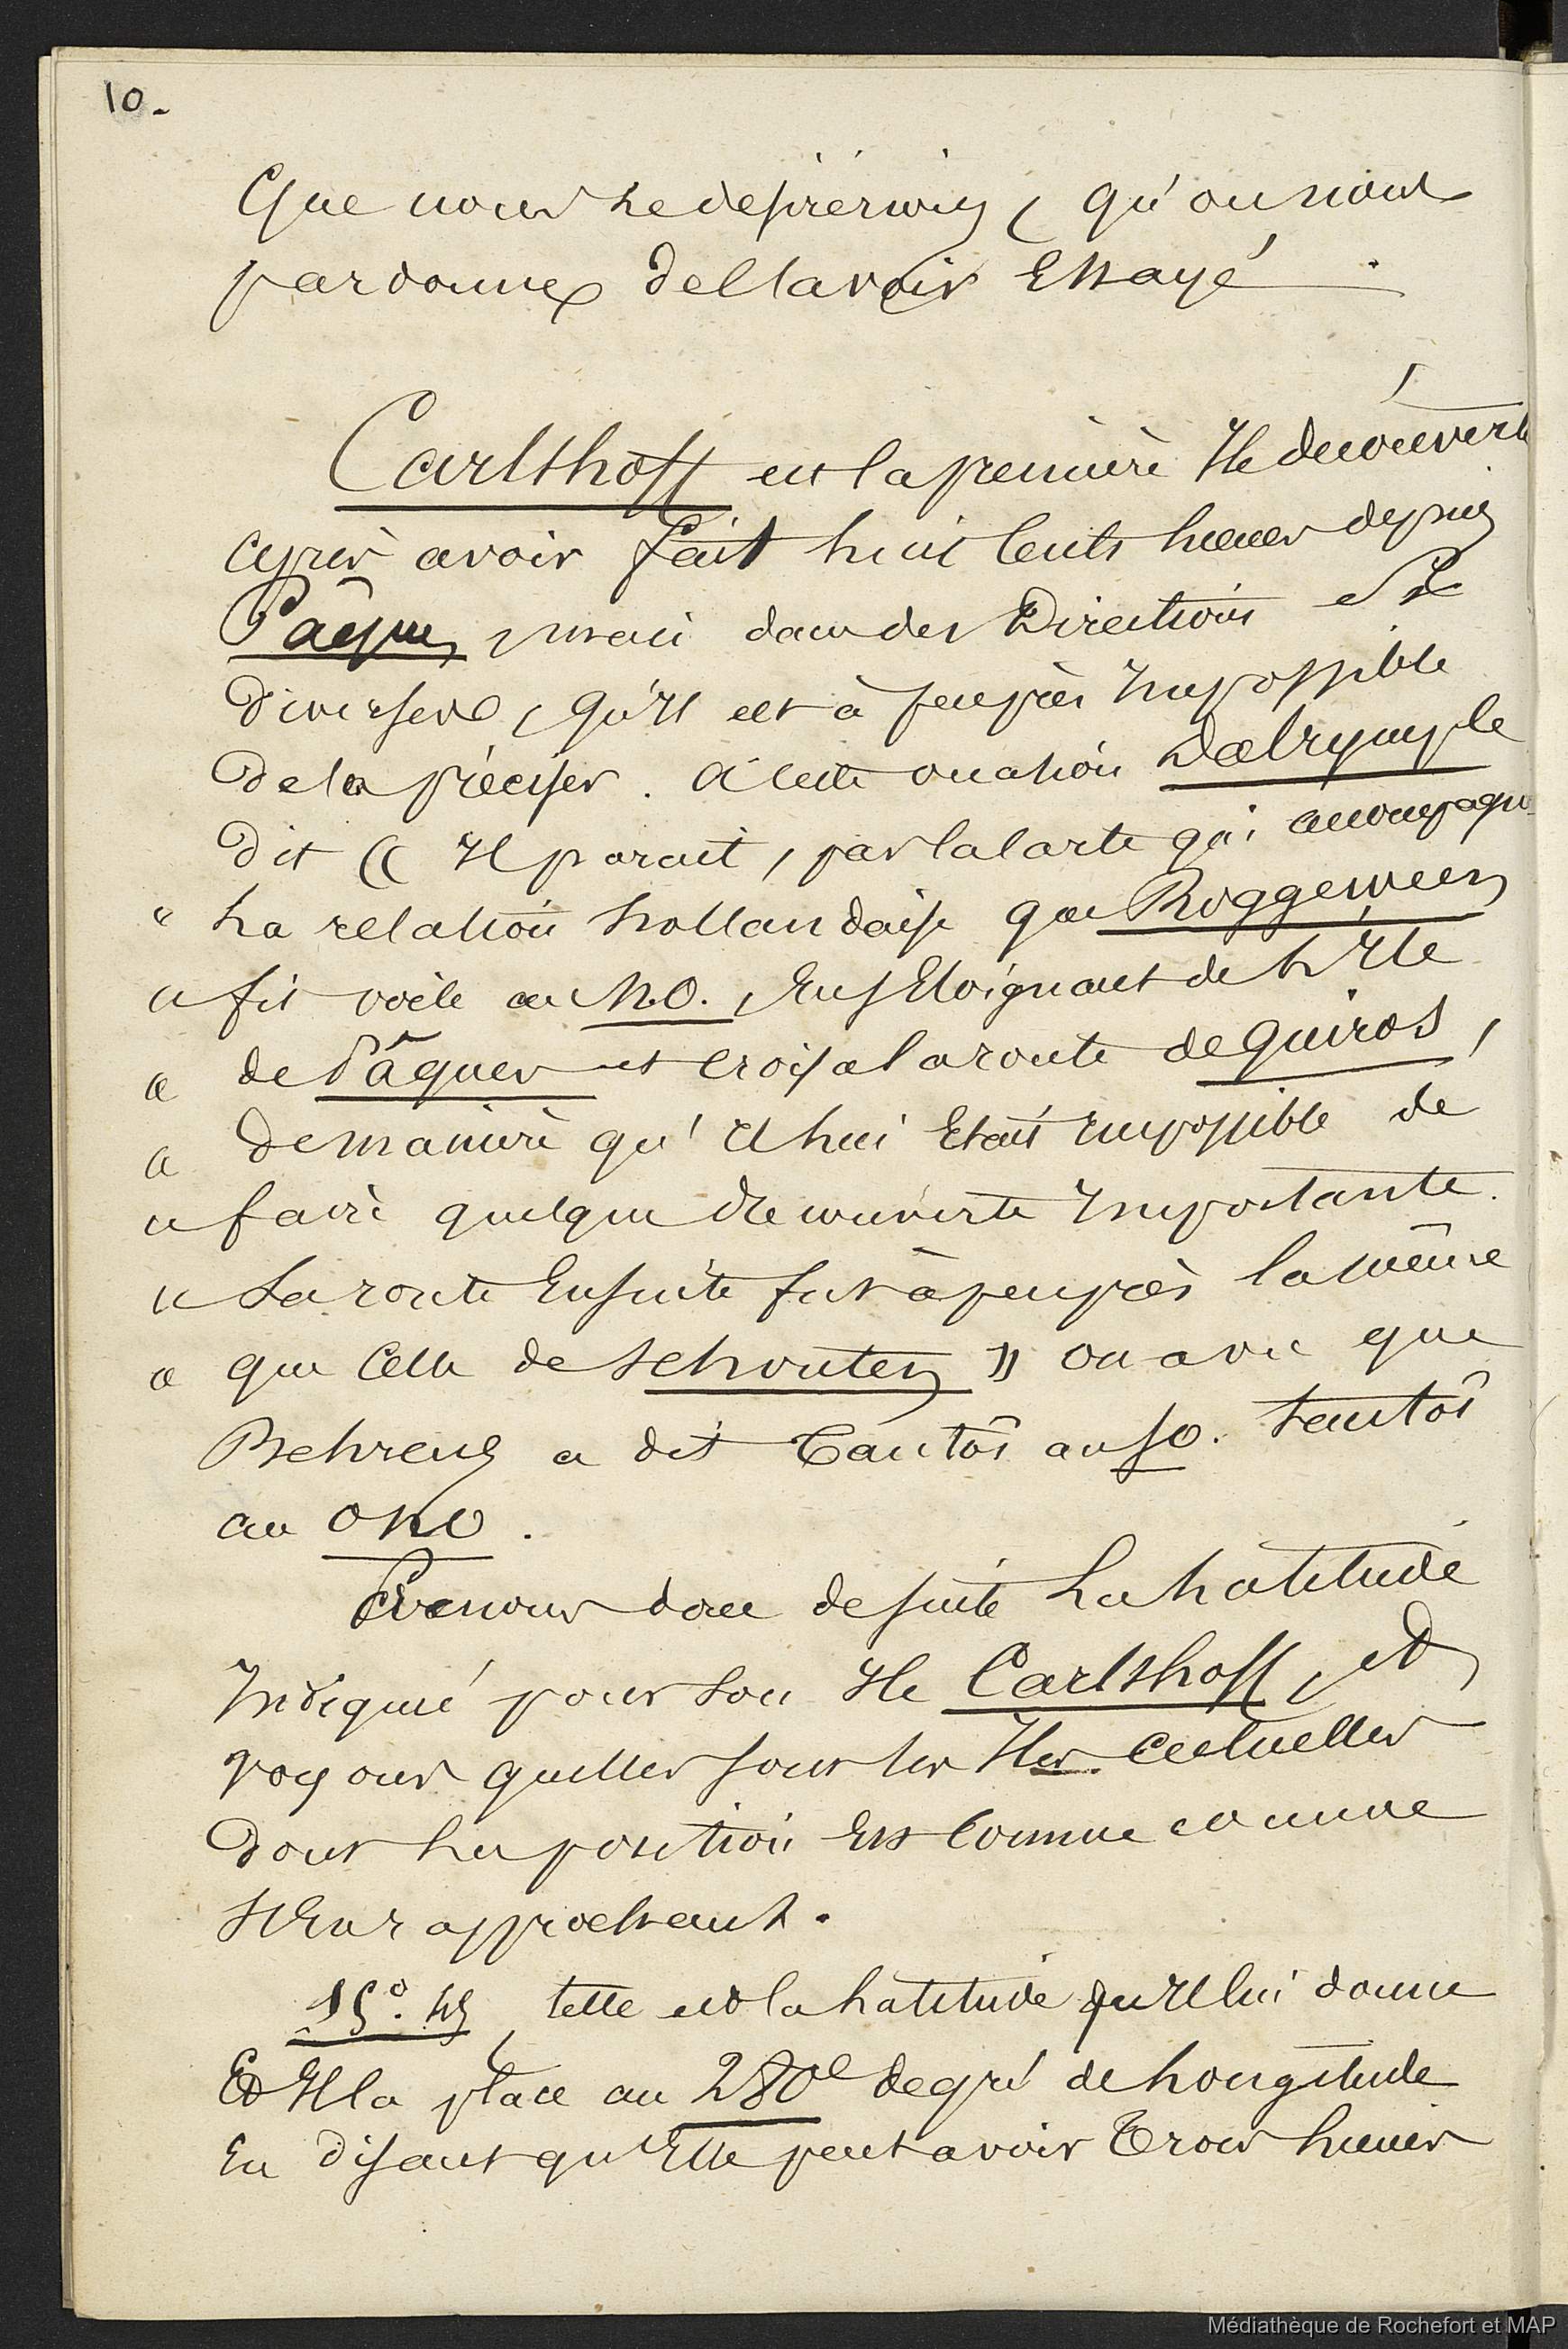 10.
Que nous le desirerions, qu'on nous
pardonne de l'avoir Essayé.
Carlshoff est la premiere Ile decouverte
après avoir fait huit Cents lieues depuis
Pâques, mais dans des Directions si
Diverses, qu'il est à peu près Impossible
De la préciser. A cette occasion Dalrymple
dit « Il parait, par la Carte qui accompagne
" La relation hollandaise que Roggeween
" fit voile au N.O. En s'Eloignant de L'Ile
" de Pâques et croisa la route de Quiros,
" De maniere qu'il lui Etait Impossible de
" faire quelque decouverte Importante.
" Sa route Ensuite fut à peu près la même
" que Celle de Schouten » on a vu que
Behrens a dit Tantôt au SO. tantôt
au ONO.
Prenons donc de suite La Latitude
Indiqué pour son Ile Carlshoff, et
voyons quelles sont les Iles actuelles
Dont La position Est Connue comme
S'En rapprochant.
15°. 45, telle est la Latitude qu'Il lui donne
Et Il la place au 280e degré de Longitude
En disant qu'Elle peut avoir Trois lieues
Médiathèque de Rochefort et MAP